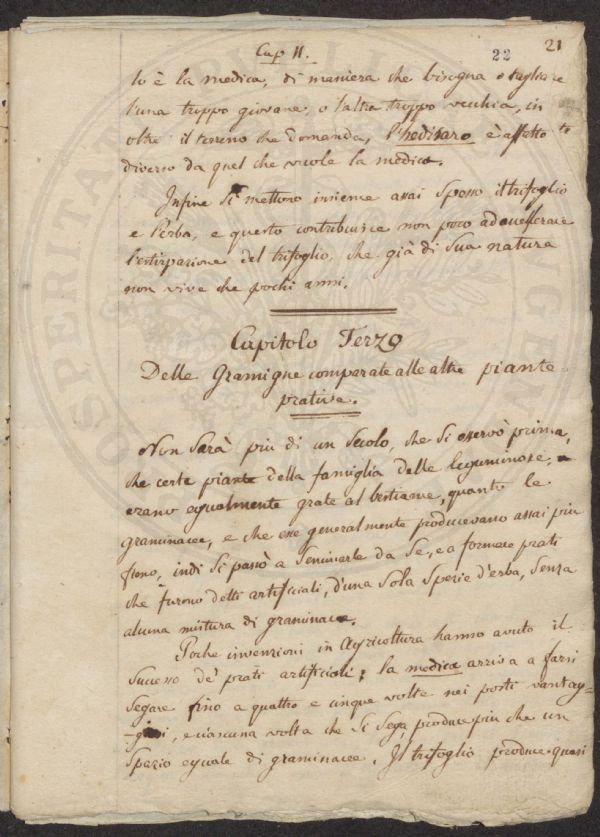 Cap II.
22 21
lo è la medica, di maniera che bisogna o tagliare
l'una troppo giovane, o l'altra troppo vecchia, in
oltre il terreno che domanda, l'hedisaro è affatto
diverso da quel che vuole la medica.
Infine si mettono insieme assai spesso il trifoglio
e l'erba, e questo contribuisce non poco ad
l'estirpazione del trifoglio, che già di sua natura
non vive che pochi anni.
Capitolo Terzo
Delle Gramigne comparate alle altre piante
prative.
Non sarà più di un secolo, che si osservò prima,
che certe piante della famiglia delle leguminose,
erano egualmente grate al bestiame, quanto le
graminacee, e che esse generalmente producevano assai più
fieno, indi si passò a seminarle da se, e a formare prati
che furono detti artificiali, d'una sola spezie d'erba, senza
alcuna mistura di graminacee.
Poche invenzioni in Agricoltura hanno avuto il
successo de' prati artificiali; la medica arriva a farsi
segare fino a quattro e cinque volte nei posti vantag-
-giosi, e ciascuna volta che si sega, produce più che un
spazio eguale di graminacee. Il trifoglio produce quasi